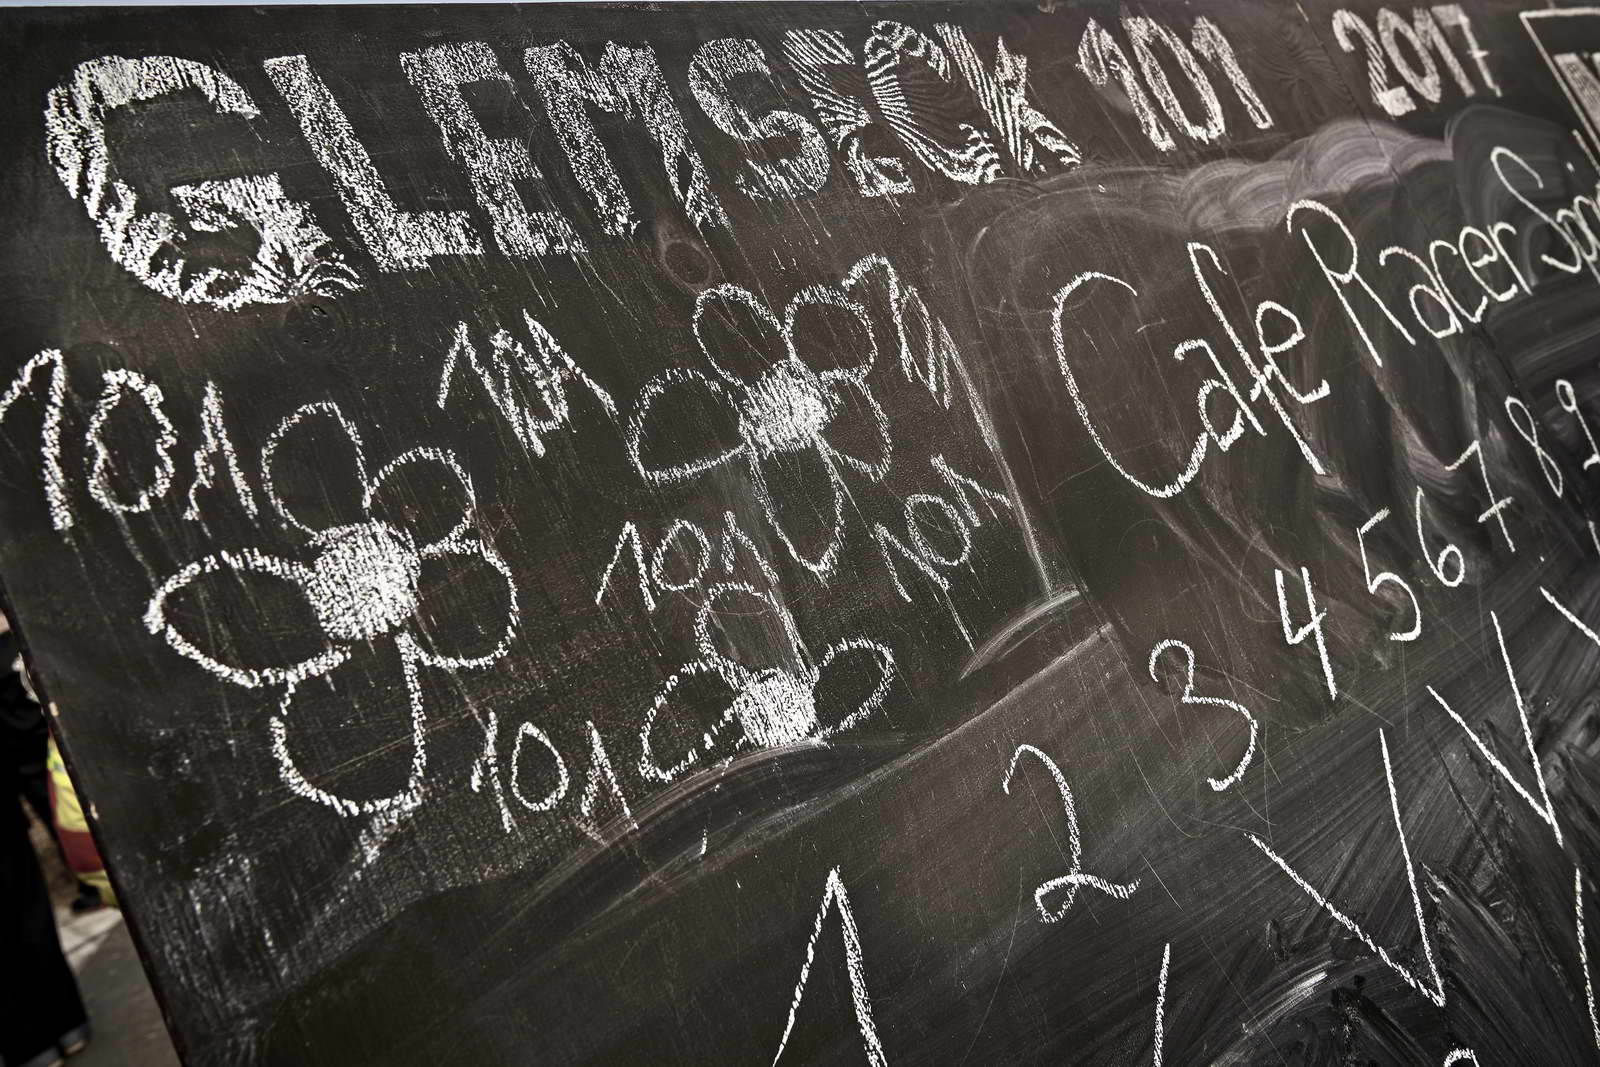 GLEMSECK 101 2017
Cafe Racer
101 101 101
101 101
101
1 2 3 4 5 6 7 8 9